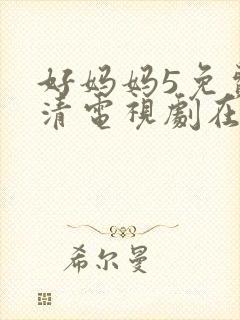 好妈妈5免
清電視劇在
希尔曼